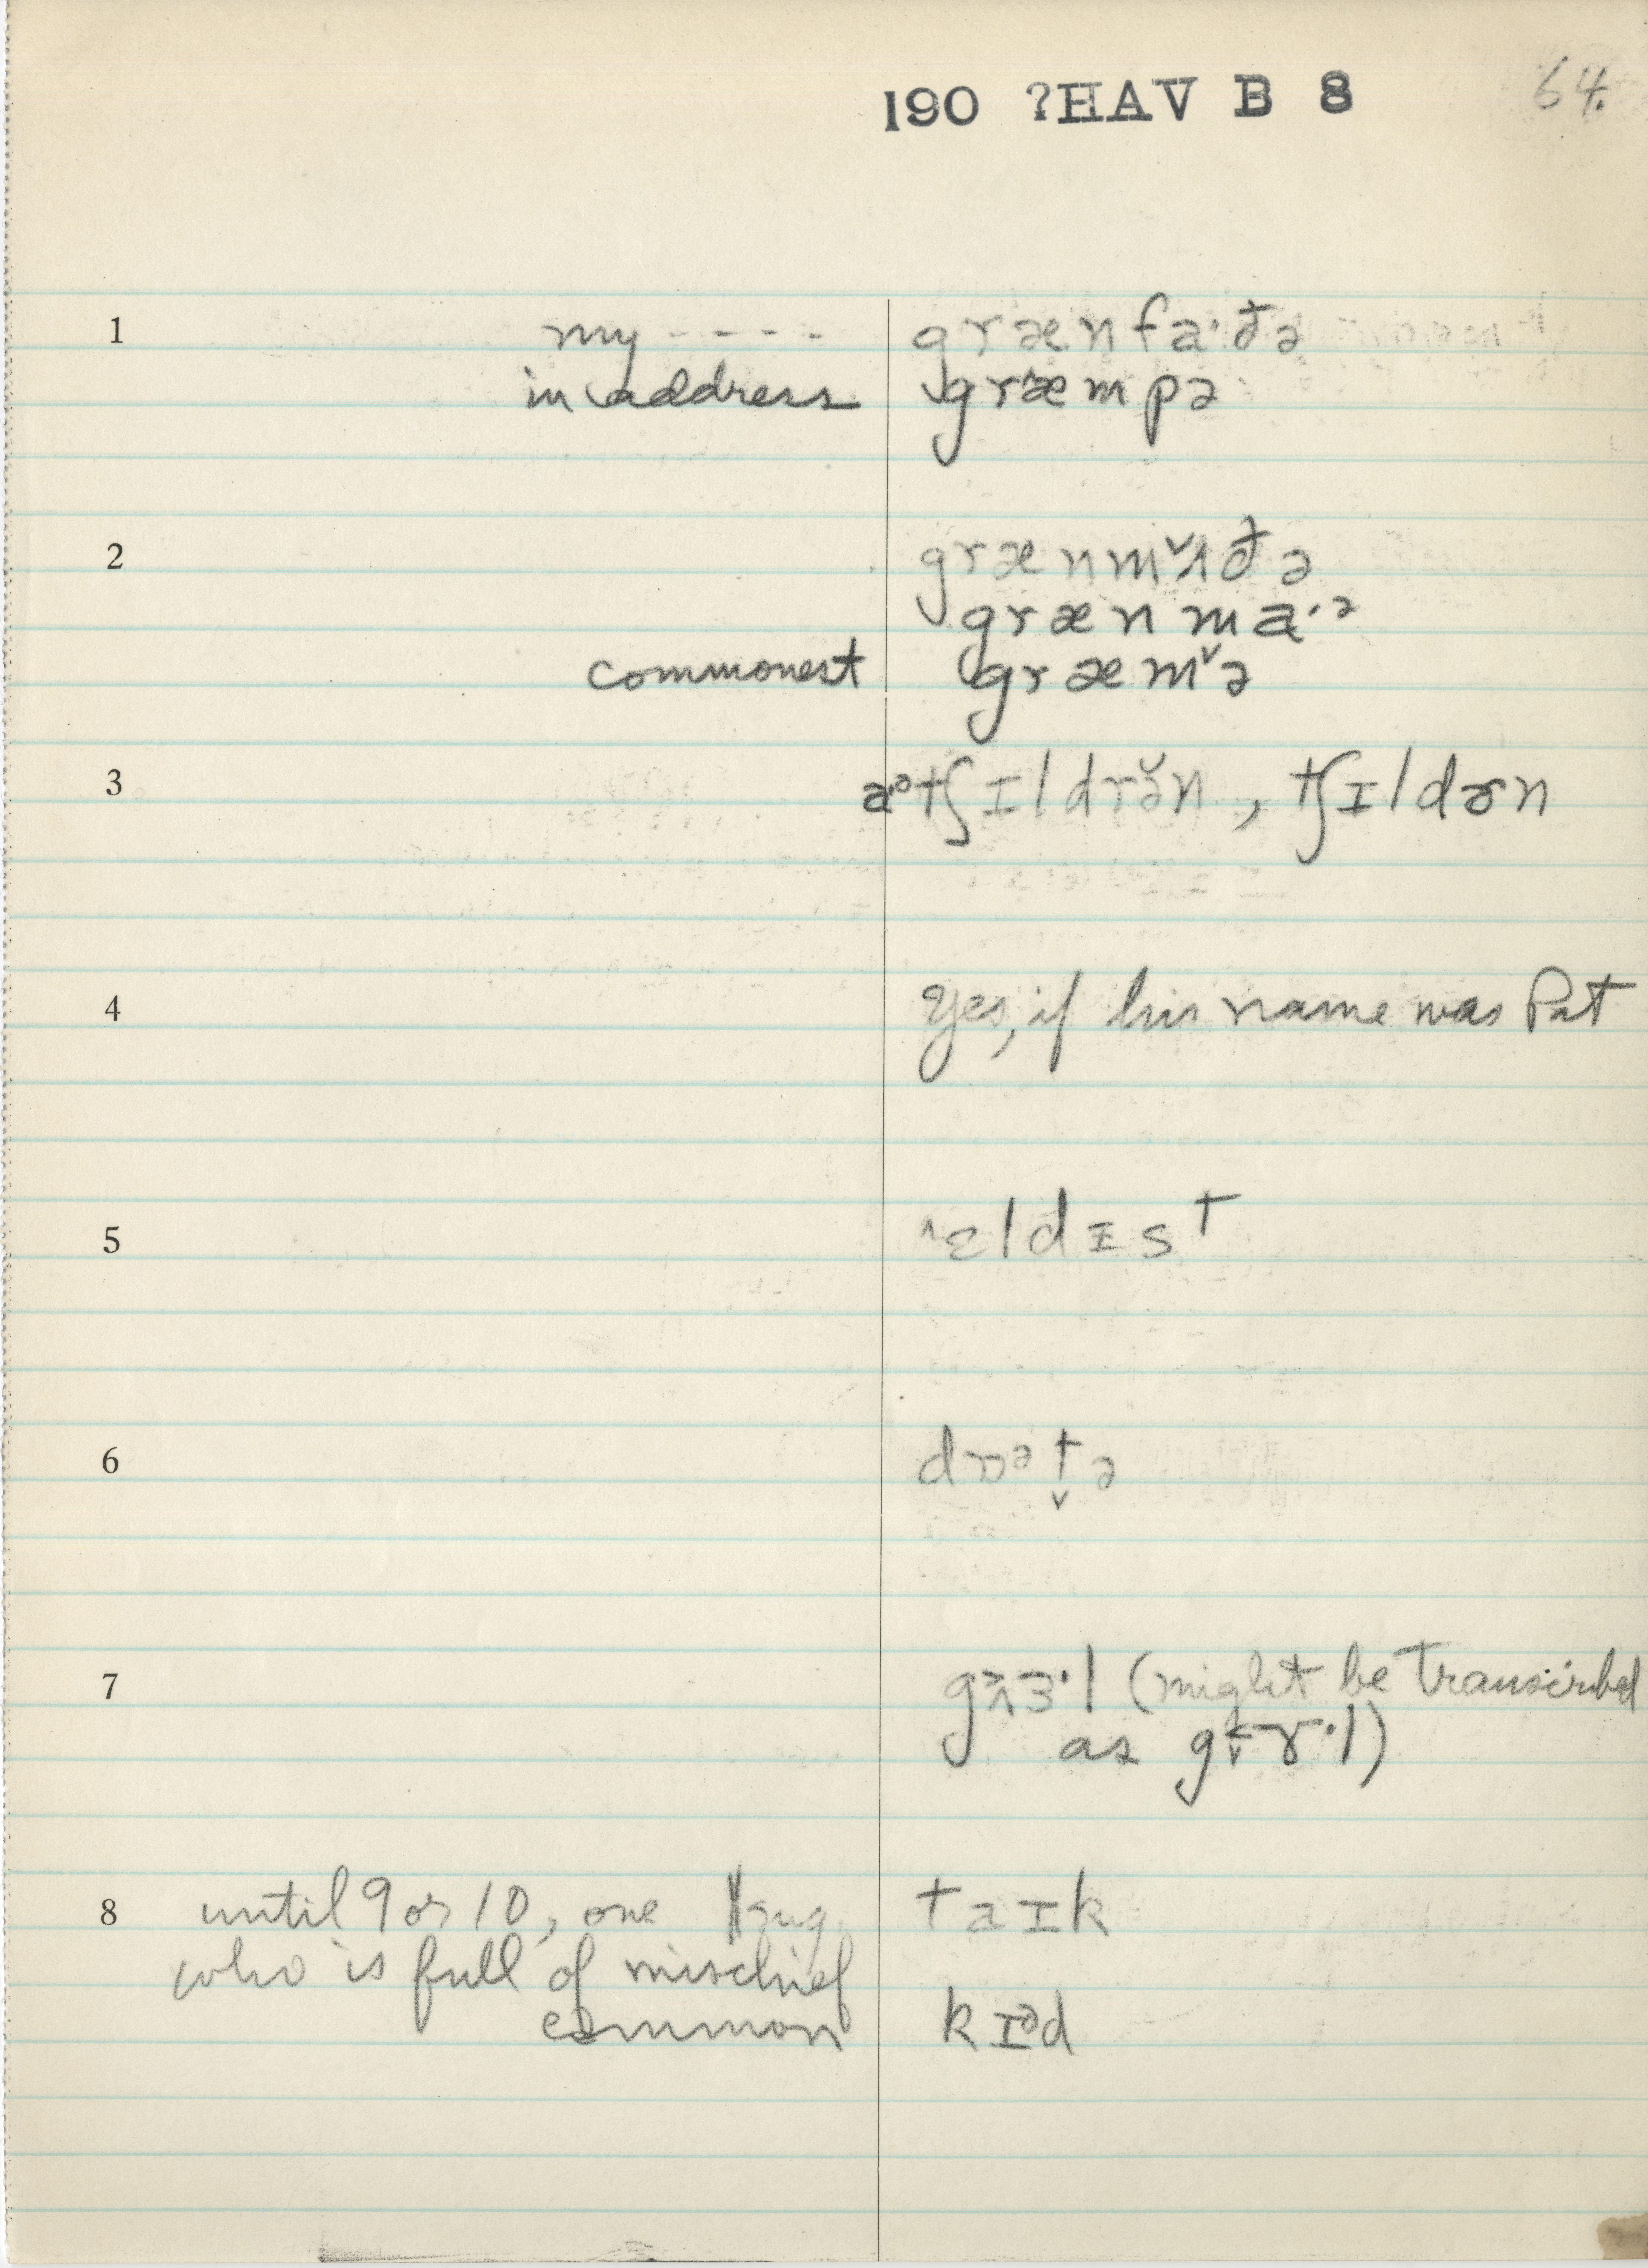 190 ?HAV B 8
64.
1 my - - - - grænfa·ðə
in address græmpə
2 grænm˅ʌðə
grænma·ᵊ
commonest græm˅ə
3 aᵊtʃɪldrə̆n, tʃɪldɚn
4 Yes, if his name was Pat
5 ˄ɛldɪst
6 dɒᵊt̬ə
7 gɜ·l (might be transcribed
as g ɤ·l)
8 until 9 or 10, one taɪk
who is full of mischief
common kɪᵊd